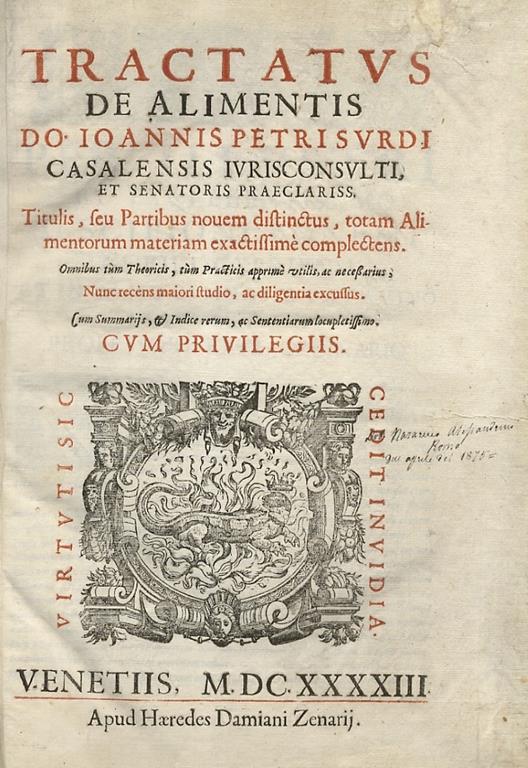 TRACTATVS
DE ALIMENTIS
DO· IOANNIS PETRI SVRDI
CASALENSIS IVRISCONSVLTI,
ET SENATORIS PRAECLARISS.
Titulis, seu Partibus nouem distinctus, totam Ali-
mentorum materiam exactissimè complectens.
Omnibus tùm Theoricis, tùm Practicis apprimè vtilis, ac necessarius;
Nunc recèns maiori studio, ac diligentia excussus.
Cum Summarijs, & Indice rerum, ac Sententiarum locupletissimo.
CVM PRIVILEGIIS.
VIRTVTI SIC
CEDIT INVIDIA.
Roma
due aprile del 1875
VENETIIS, M. DC. XXXXIII.
Apud Hæredes Damiani Zenarij.